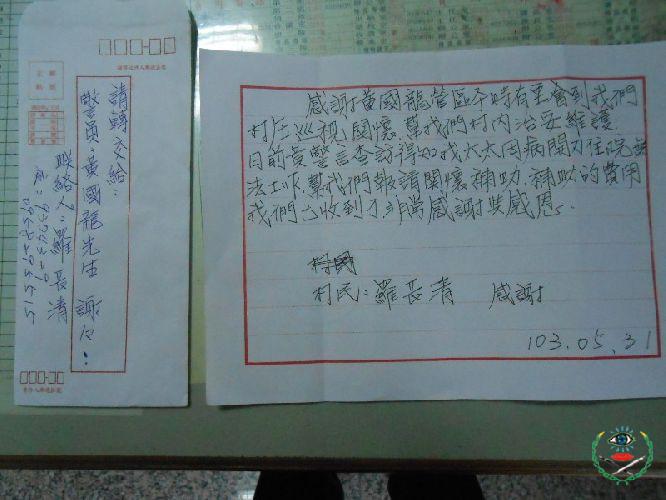 請轉交給:
警員:黃國龍先生 謝々!
聯絡人:羅長清
感謝黃國龍管區平時有至會到我們
村庄巡視關懷.幫我們村內治安維護
日前黃警員查訪得知我太太因病開刀住院無
法工作.幫我們報請關懷補助.補助的費用
我們已收到了非常感謝與感恩.
村民:羅長清 感謝
103.05.31